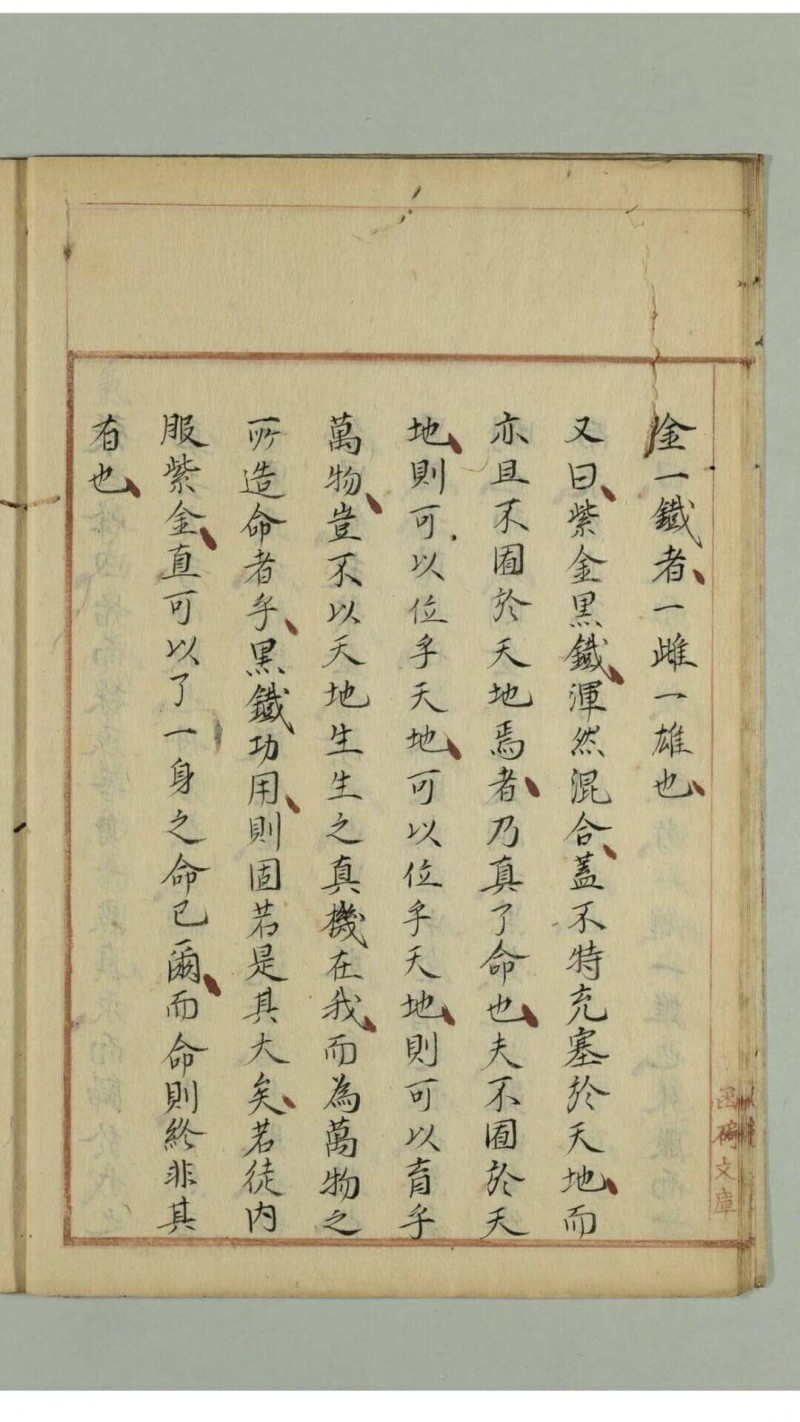 金一鐵者一雌一雄也
又曰紫金黒鐵渾然混合蓋不特充塞於天地而
亦且不囿於天地焉者乃真了命也夫不囿於天
地則可以位乎天地可以位乎天地則可以育乎
萬物豈不以天地生生之真機在我而為萬物之
所造命者乎黒鐵功用則固若是其大矣若徒内
服紫金直可以了一身之命已爾而命則終非其
有也
文庫